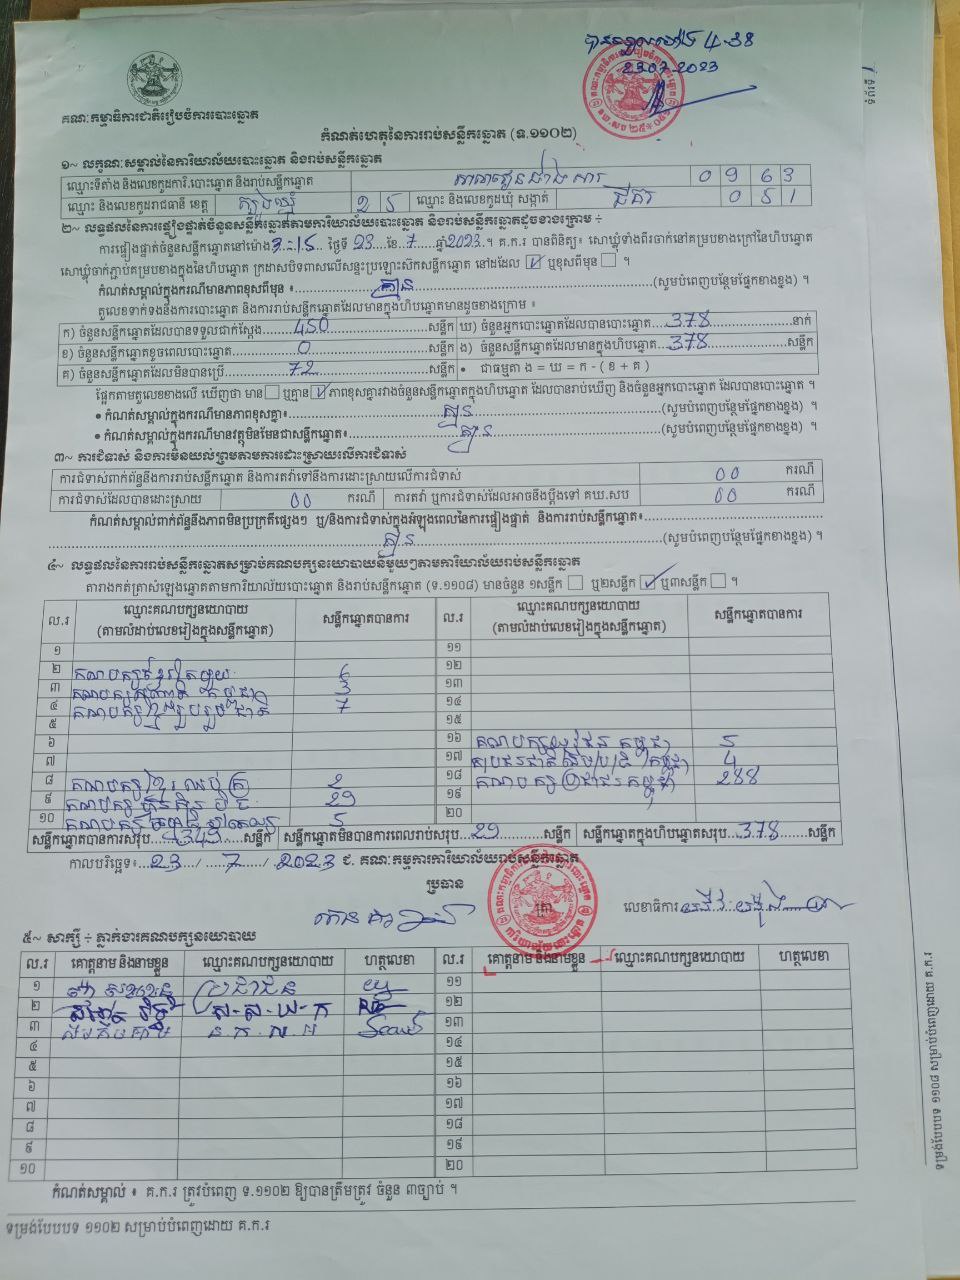 4-38
23-07-2023
គណៈកម្មាធិការជាតិរៀបចំការបោះឆ្នោត
កំណត់ហេតុនៃការរាប់សន្លឹកឆ្នោត (ទ.១១០២)
១~ លក្ខណៈសម្គាល់នៃការិយាល័យបោះឆ្នោត និងរាប់សន្លឹកឆ្នោត
ឈ្មោះទីតាំង និងលេខកូដការិ.បោះឆ្នោត និងរាប់សន្លឹកឆ្នោត 0 9 6 3
ឈ្មោះ និងលេខកូដរាជធានី ខេត្ត ត្បូងឃ្មុំ 2 5 ឈ្មោះ និងលេខកូដឃុំ សង្កាត់ 0 5 1
២~ លទ្ធផលនៃការផ្ទៀងផ្ទាត់ចំនួនសន្លឹកឆ្នោតតាមការិយាល័យបោះឆ្នោត និងរាប់សន្លឹកឆ្នោតដូចខាងក្រោម ÷
ការផ្ទៀងផ្ទាត់ចំនួនសន្លឹកឆ្នោតនៅម៉ោង 3-15 ថ្ងៃទី 23 ខែ 7 ឆ្នាំ 2023 ។ គ.ក.រ បានពិនិត្យ៖ សោឃ្លុំទាំងពីរចាក់នៅគម្របខាងក្រៅនៃហិបឆ្នោត
សោឃ្លុំចាក់ភ្ជាប់គម្របខាងក្នុងនៃហិបឆ្នោត ក្រដាសបិទពាសលើសន្ទះប្រឡោះស៊កសន្លឹកឆ្នោត នៅដដែល ✓ ឬខុសពីមុន ។
កំណត់សម្គាល់ក្នុងករណីមានភាពខុសពីមុន ៖ គ្មាន (សូមបំពេញបន្ថែមផ្នែកខាងខ្នង) ។
តួលេខទាក់ទងនឹងការបោះឆ្នោត និងការរាប់សន្លឹកឆ្នោតដែលមានក្នុងហិបឆ្នោតមានដូចខាងក្រោម ៖
ក) ចំនួនសន្លឹកឆ្នោតដែលបានទទួលជាក់ស្តែង 450 សន្លឹក ឃ) ចំនួនអ្នកបោះឆ្នោតដែលបានបោះឆ្នោត 378 នាក់
ខ) ចំនួនសន្លឹកឆ្នោតខូចពេលបោះឆ្នោត 0 សន្លឹក ង) ចំនួនសន្លឹកឆ្នោតដែលមានក្នុងហិបឆ្នោត 378 សន្លឹក
គ) ចំនួនសន្លឹកឆ្នោតដែលមិនបានប្រើ 72 សន្លឹក • ជាធម្មតា ង = ឃ = ក - ( ខ + គ )
ផ្អែកតាមតួលេខខាងលើ ឃើញថា មាន ឬគ្មាន ✓ ភាពខុសគ្នារវាងចំនួនសន្លឹកឆ្នោតក្នុងហិបឆ្នោត ដែលបានរាប់ឃើញ និងចំនួនអ្នកបោះឆ្នោត ដែលបានបោះឆ្នោត ។
• កំណត់សម្គាល់ក្នុងករណីមានភាពខុសគ្នា៖ គ្មាន (សូមបំពេញបន្ថែមផ្នែកខាងខ្នង) ។
• កំណត់សម្គាល់ក្នុងករណីមានវត្ថុមិនមែនជាសន្លឹកឆ្នោត៖ គ្មាន (សូមបំពេញបន្ថែមផ្នែកខាងខ្នង) ។
៣~ ការជំទាស់ និងការមិនយល់ព្រមតាមការដោះស្រាយលើការជំទាស់
ការជំទាស់ពាក់ព័ន្ធនឹងការរាប់សន្លឹកឆ្នោត និងការតវ៉ាទៅនឹងការដោះស្រាយលើការជំទាស់ 00 ករណី
ការជំទាស់ដែលបានដោះស្រាយ 00 ករណី ការតវ៉ា ឬការជំទាស់ដែលអាចនឹងប្តឹងទៅ គឃ.សប 00 ករណី
កំណត់សម្គាល់ពាក់ព័ន្ធនឹងភាពមិនប្រក្រតីផ្សេងៗ ឬ/និងការជំទាស់ក្នុងអំឡុងពេលនៃការផ្ទៀងផ្ទាត់ និងការរាប់សន្លឹកឆ្នោត៖
គ្មាន (សូមបំពេញបន្ថែមផ្នែកខាងខ្នង) ។
៤~ លទ្ធផលនៃការរាប់សន្លឹកឆ្នោតសម្រាប់គណបក្សនយោបាយនីមួយៗតាមការិយាល័យរាប់សន្លឹកឆ្នោត
តារាងកត់ត្រាសំឡេងឆ្នោតតាមការិយាល័យបោះឆ្នោត និងរាប់សន្លឹកឆ្នោត (ទ.១១០៨) មានចំនួន ១សន្លឹក ឬ២សន្លឹក ✓ ឬ៣សន្លឹក ។
ល.រ ឈ្មោះគណបក្សនយោបាយ (តាមលំដាប់លេខរៀងក្នុងសន្លឹកឆ្នោត) សន្លឹកឆ្នោតបានការ ល.រ ឈ្មោះគណបក្សនយោបាយ (តាមលំដាប់លេខរៀងក្នុងសន្លឹកឆ្នោត) សន្លឹកឆ្នោតបានការ
១ ១១
២ គណបក្សខ្មែរតែមួយ 6 ១២
៣ 3 ១៣
៤ គណបក្សខ្មែររួបរួមជាតិ 7 ១៤
៥ ១៥
៦ ១៦ គណបក្សយុវជនកម្ពុជា 5
៧ ១៧ 4
៨ គណបក្ស 2 ១៨ គណបក្សប្រជាជនកម្ពុជា 288
៩ គណបក្សហ៊្វុនស៊ិនប៉ិច 29 ១៩
១០ គណបក្ស 5 ២០
សន្លឹកឆ្នោតបានការសរុប 349 សន្លឹក សន្លឹកឆ្នោតមិនបានការពេលរាប់សរុប 29 សន្លឹក សន្លឹកឆ្នោតក្នុងហិបឆ្នោតសរុប 378 សន្លឹក
កាលបរិច្ឆេទ៖ 23 / 7 / 2023 ជ. គណៈកម្មការការិយាល័យរាប់សន្លឹកឆ្នោត
ប្រធាន លេខាធិការ
៥~ សាក្សី ÷ ភ្នាក់ងារគណបក្សនយោបាយ
ល.រ គោត្តនាម និងនាមខ្លួន ឈ្មោះគណបក្សនយោបាយ ហត្ថលេខា ល.រ គោត្តនាម និងនាមខ្លួន ឈ្មោះគណបក្សនយោបាយ ហត្ថលេខា
១ ប្រជាជន ១១
២ ១២
៣ ១៣
៤ ១៤
៥ ១៥
៦ ១៦
៧ ១៧
៨ ១៨
៩ ១៩
១០ ២០
កំណត់សម្គាល់ ៖ គ.ក.រ ត្រូវបំពេញ ទ.១១០២ ឱ្យបានត្រឹមត្រូវ ចំនួន ៣ច្បាប់ ។
ទម្រង់បែបបទ ១១០២ សម្រាប់បំពេញដោយ គ.ក.រ